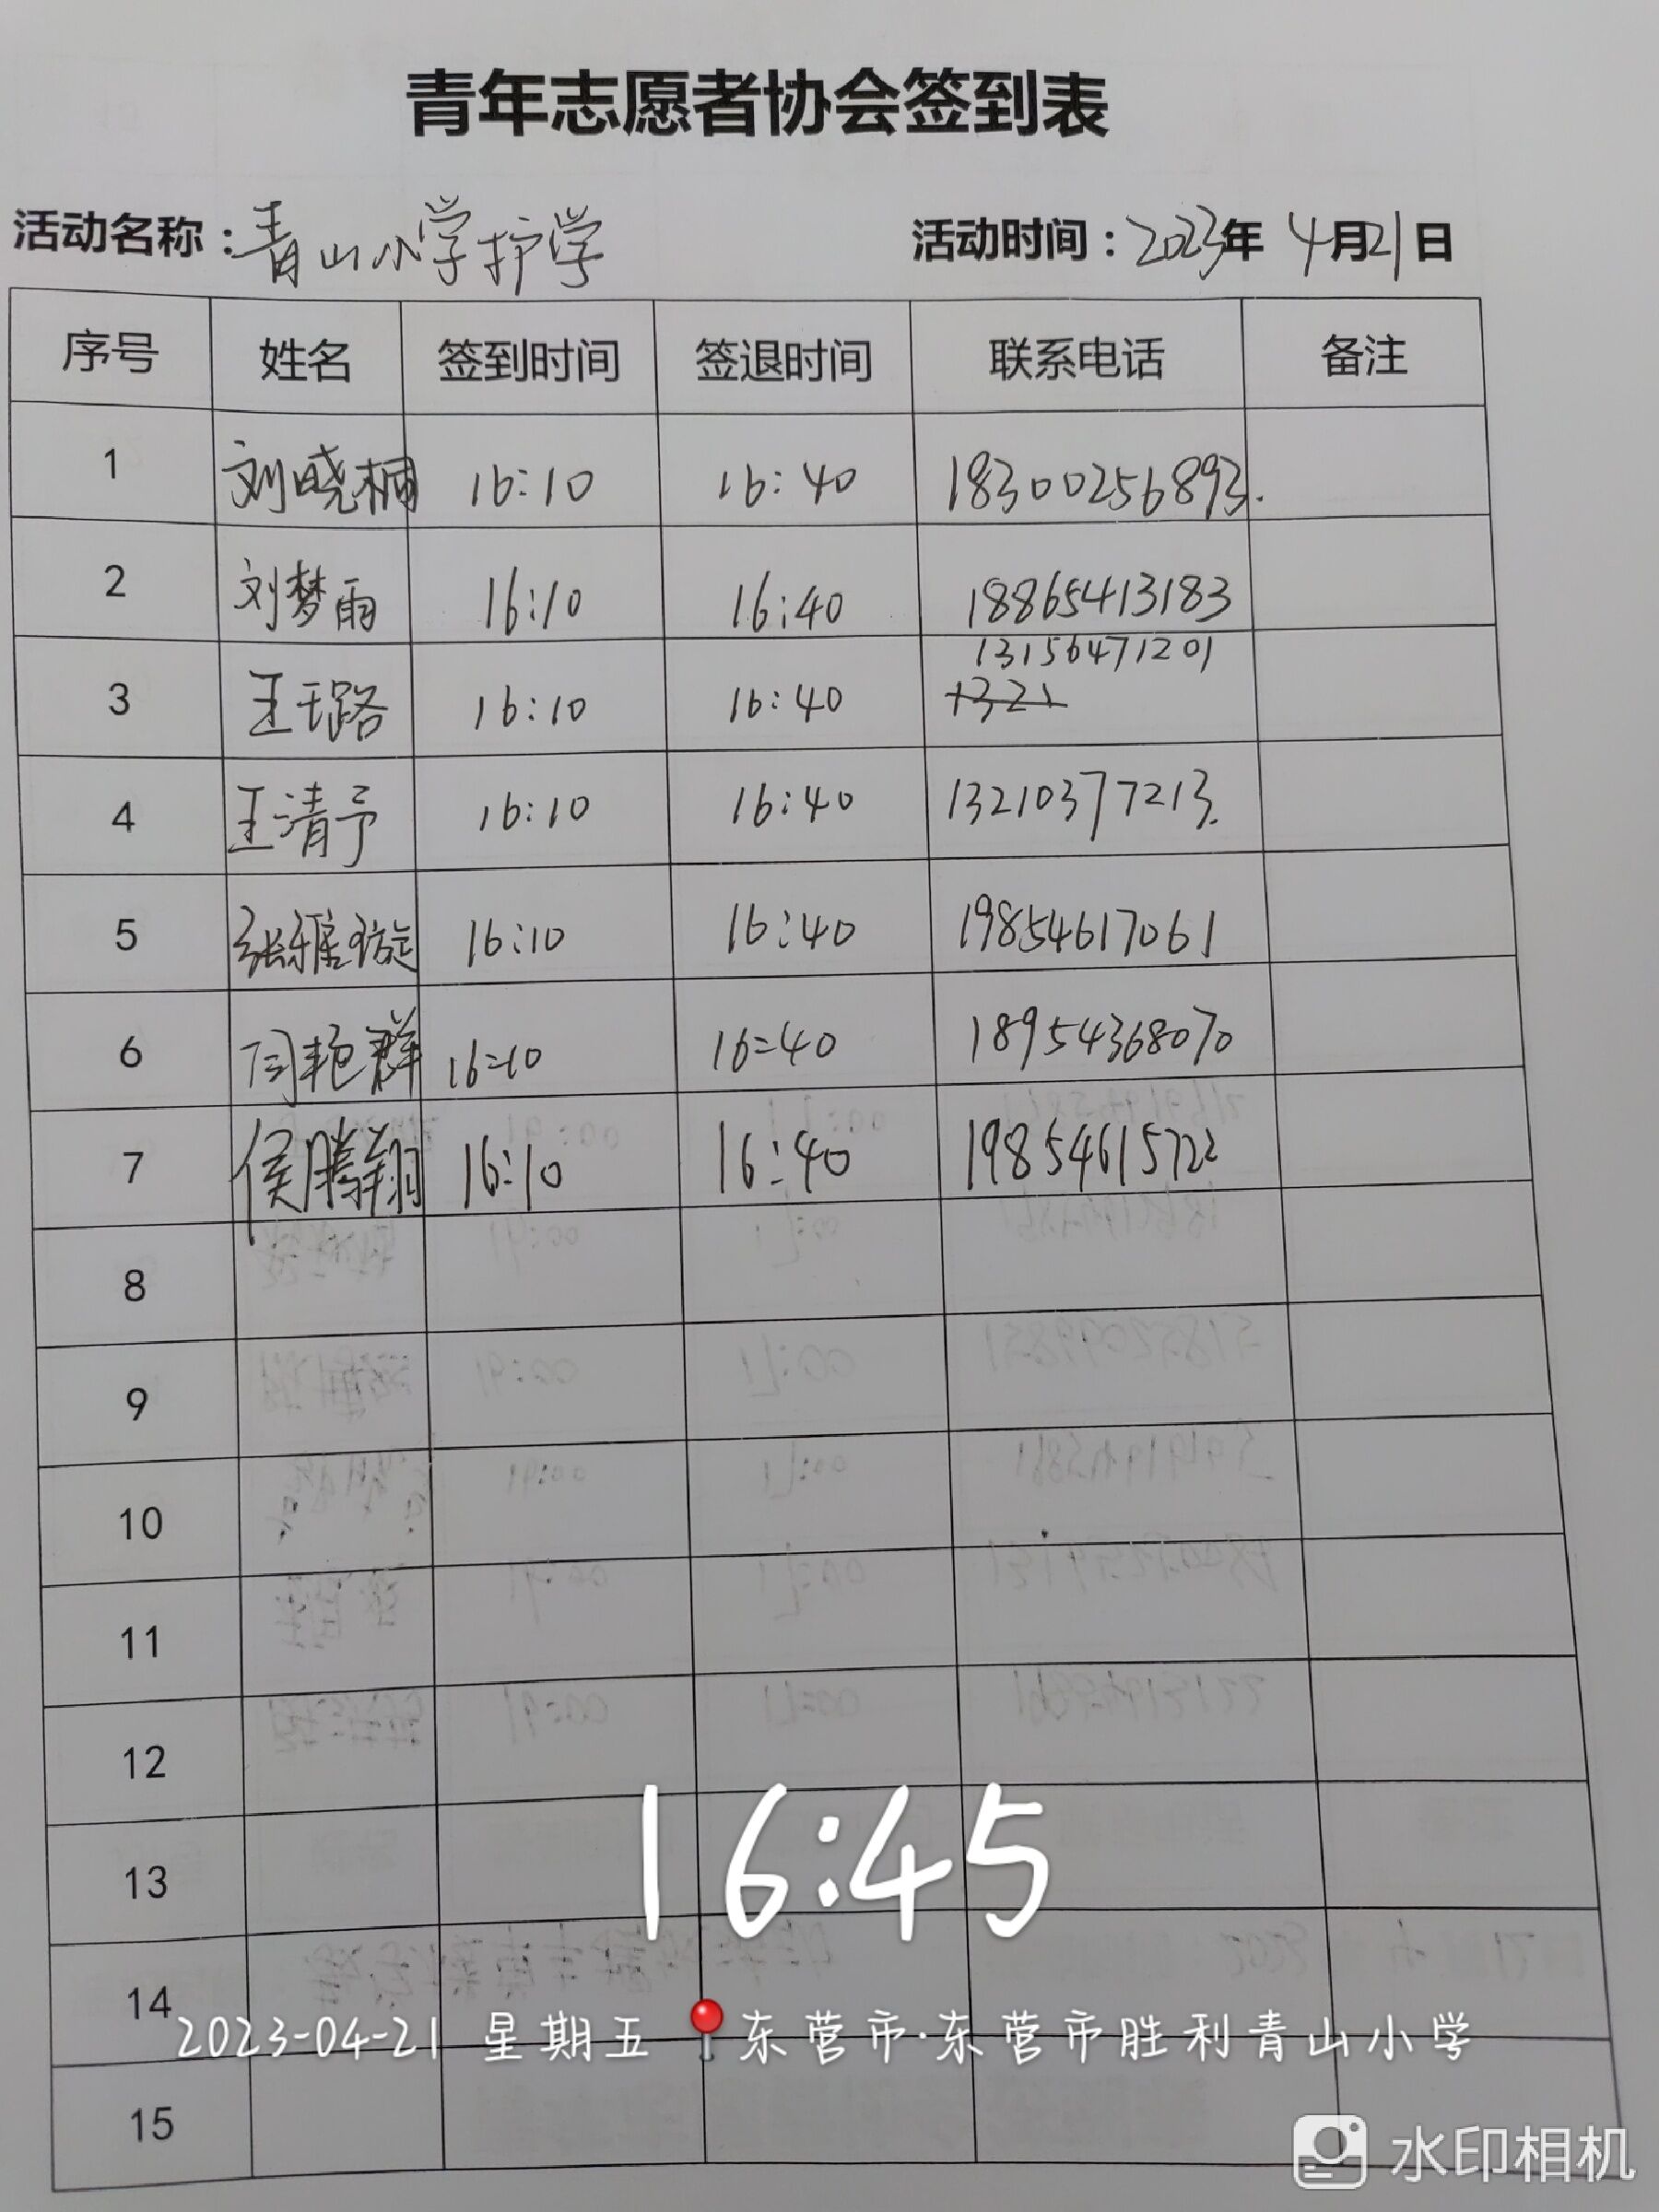 青年志愿者协会签到表
活动名称：青山小学护学 活动时间：2023年 4月21日
序号 姓名 签到时间 签退时间 联系电话 备注
1 刘晓桐 16:10 16:40 18300256893.
2 刘梦雨 16:10 16:40 18865413183
3 王路 16:10 16:40 13156471201
1321
4 王清予 16:10 16:40 13210377213.
5 张雅璇 16:10 16:40 19854617061
6 闫艳群 16=10 16=40 18954368070
7 侯腾翔 16:10 16:40 19854615722
8
9
10
11
12
16:45
13
14
2023-04-21 星期五 东营市·东营市胜利青山小学
15
水印相机